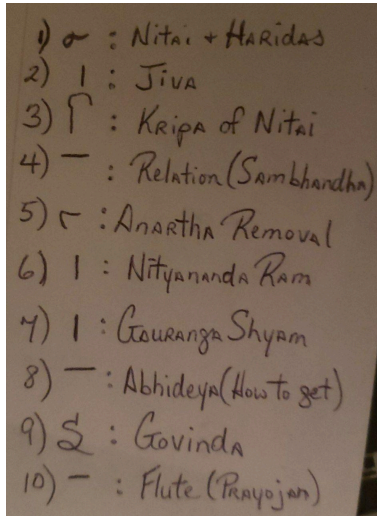 1) σ : Nitai + Haridas
2) | : Jiva
3) ʃ : Kripa of Nitai
4) — : Relation (Sambhandha)
5) r : Anartha Removal
6) | : Nityananda Ram
7) | : Gauranga Shyam
8) — : Abhideya (How to get)
9) S : Govinda
10) — : Flute (Prayojan)